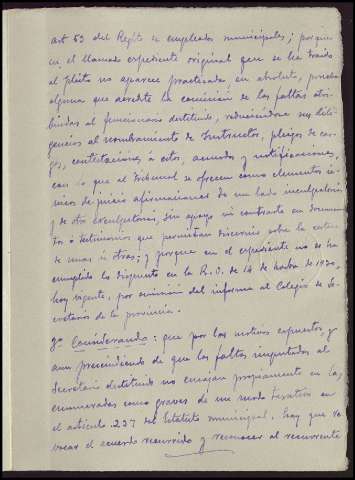 art 53 del Regltº de empleados municipales; porque
en el llamado expediente original que se ha traido
al pleito no aparece practicada en absoluto, prueba
alguna que acredite la comisión de las faltas atri-
buidas al funcionario destituido, reduciéndose sus dili-
gencias al nombramiento de Instructor, pliegos de car-
gos, contestaciones a estos, acuerdos y notificaciones,
con lo que al Tribunal se ofrecen como elementos ú-
nicos de juicio afirmaciones de un lado inculpatorias
y de otro exculpatorias, sin apoyo ni contraste en documen-
tos o testimonios que permitan discernir sobre la certeza
de unas u otras; y porque en el expediente no se ha
cumplido lo dispuesto en la R.O. de 14 de
hoy vigente, por omisión del informe al Colegio de Se-
cretarios de la provincia.
Considerando: que por los motivos expuestos, y
aun prescindiendo de que las faltas imputadas al
Secretario destituido no encajan propiamente en las
enumeradas como graves de un modo taxativo en
el artículo 237 del Estatuto municipal, hay que re-
vocar el acuerdo recurrido y reconocer al recurrente